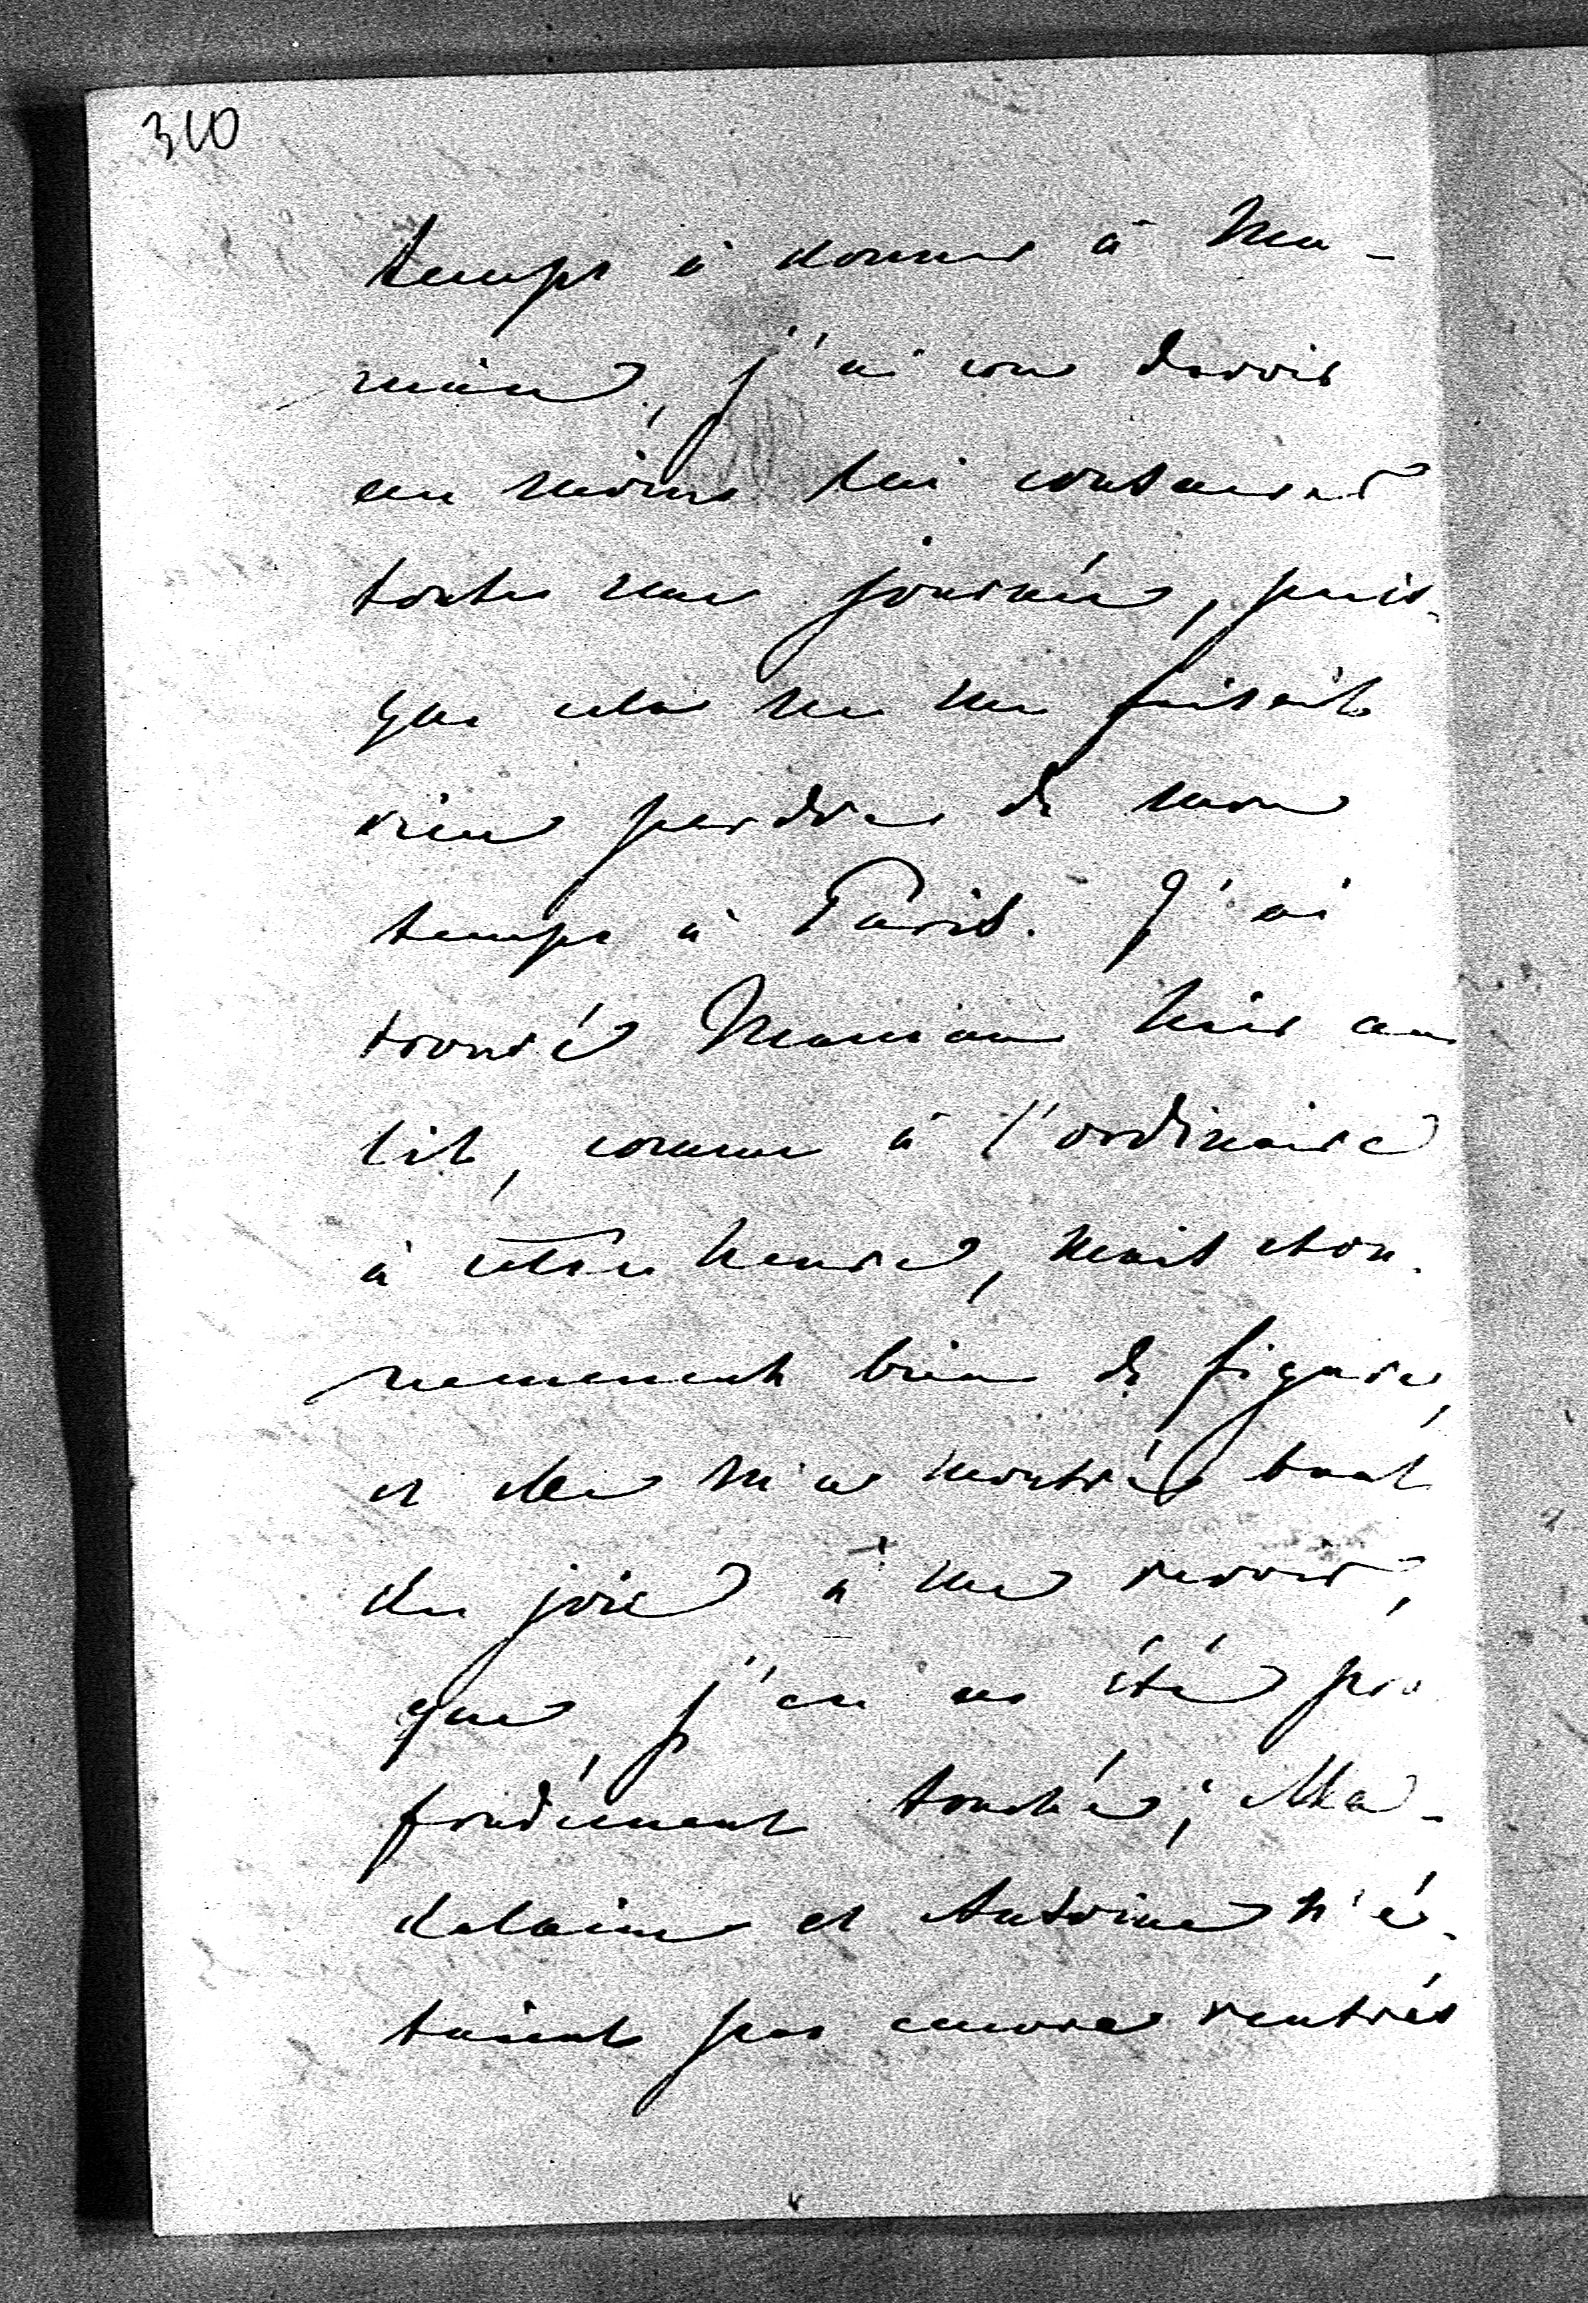 310
temps à donner à Ma-
man, j'ai cru devoir
au moins lui consacrer
toute une journée, puis-
que cela ne me faisait
rien perdre de mon
temps à Paris. J'ai
trouvé Maman hier au
lit, comme à l'ordinaire
à cette heure, mais éton-
nemment bien de figure,
et elle m'a montré tant
de joie à me revoir,
que j'en ai été pro
fondément touché; Ma-
delaine et Antoine n'é-
taient pas encore rentrés